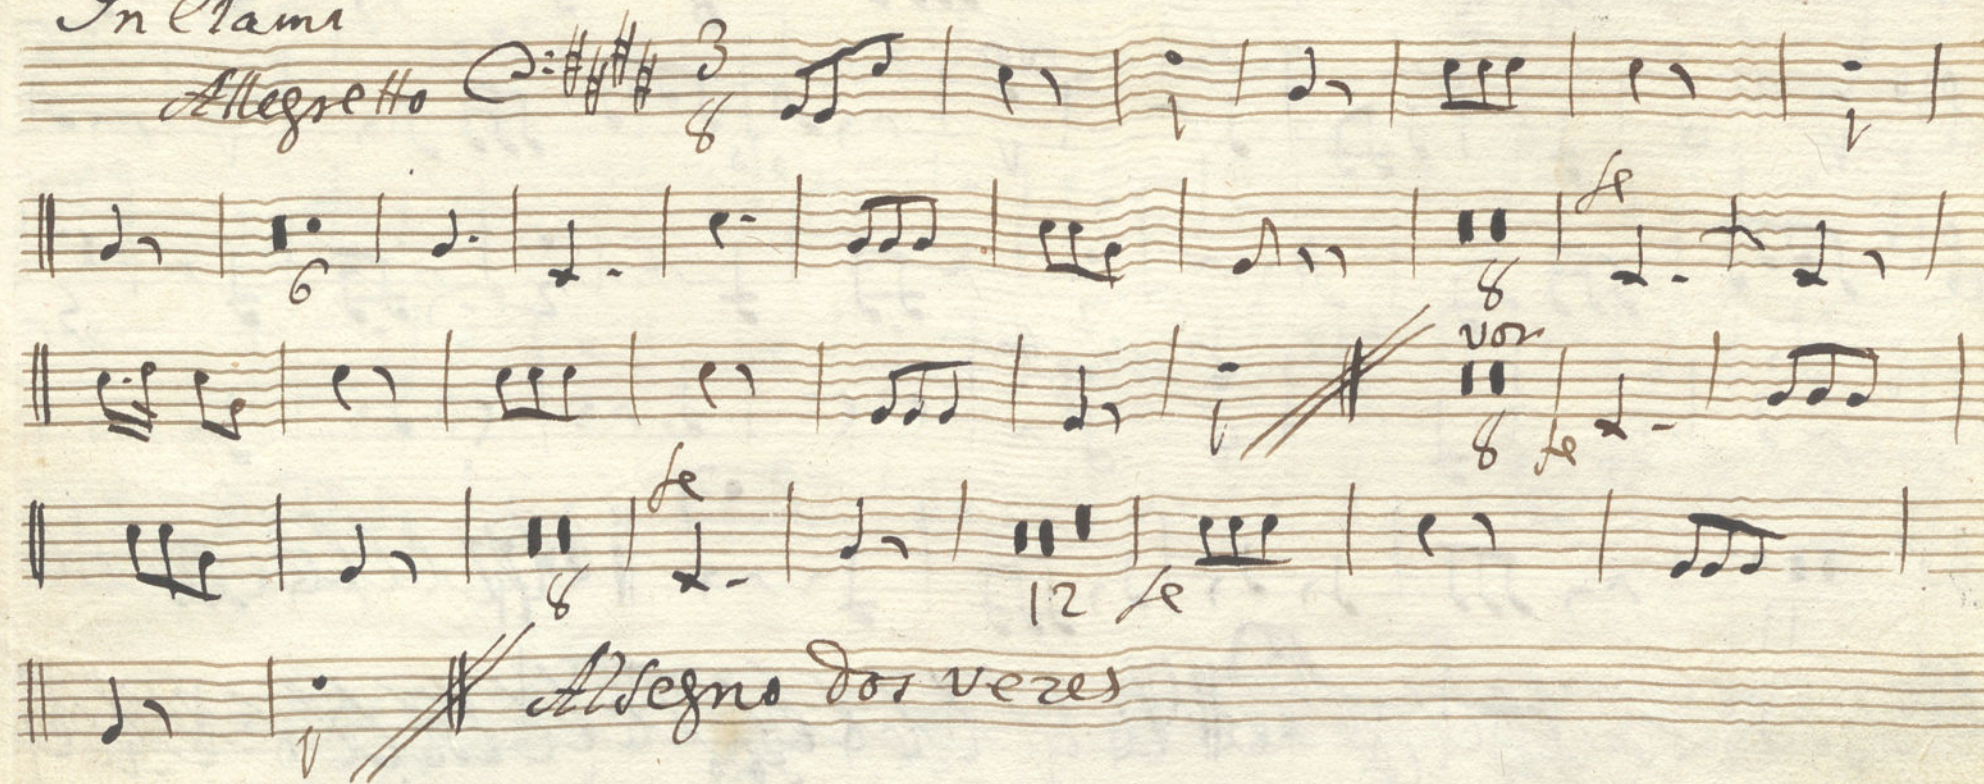 In Elami
Allegretto 3 8 1 1
6 8 fe
1 voz 8 fe
8 fe 12 fe
1 Al segno dos vezes